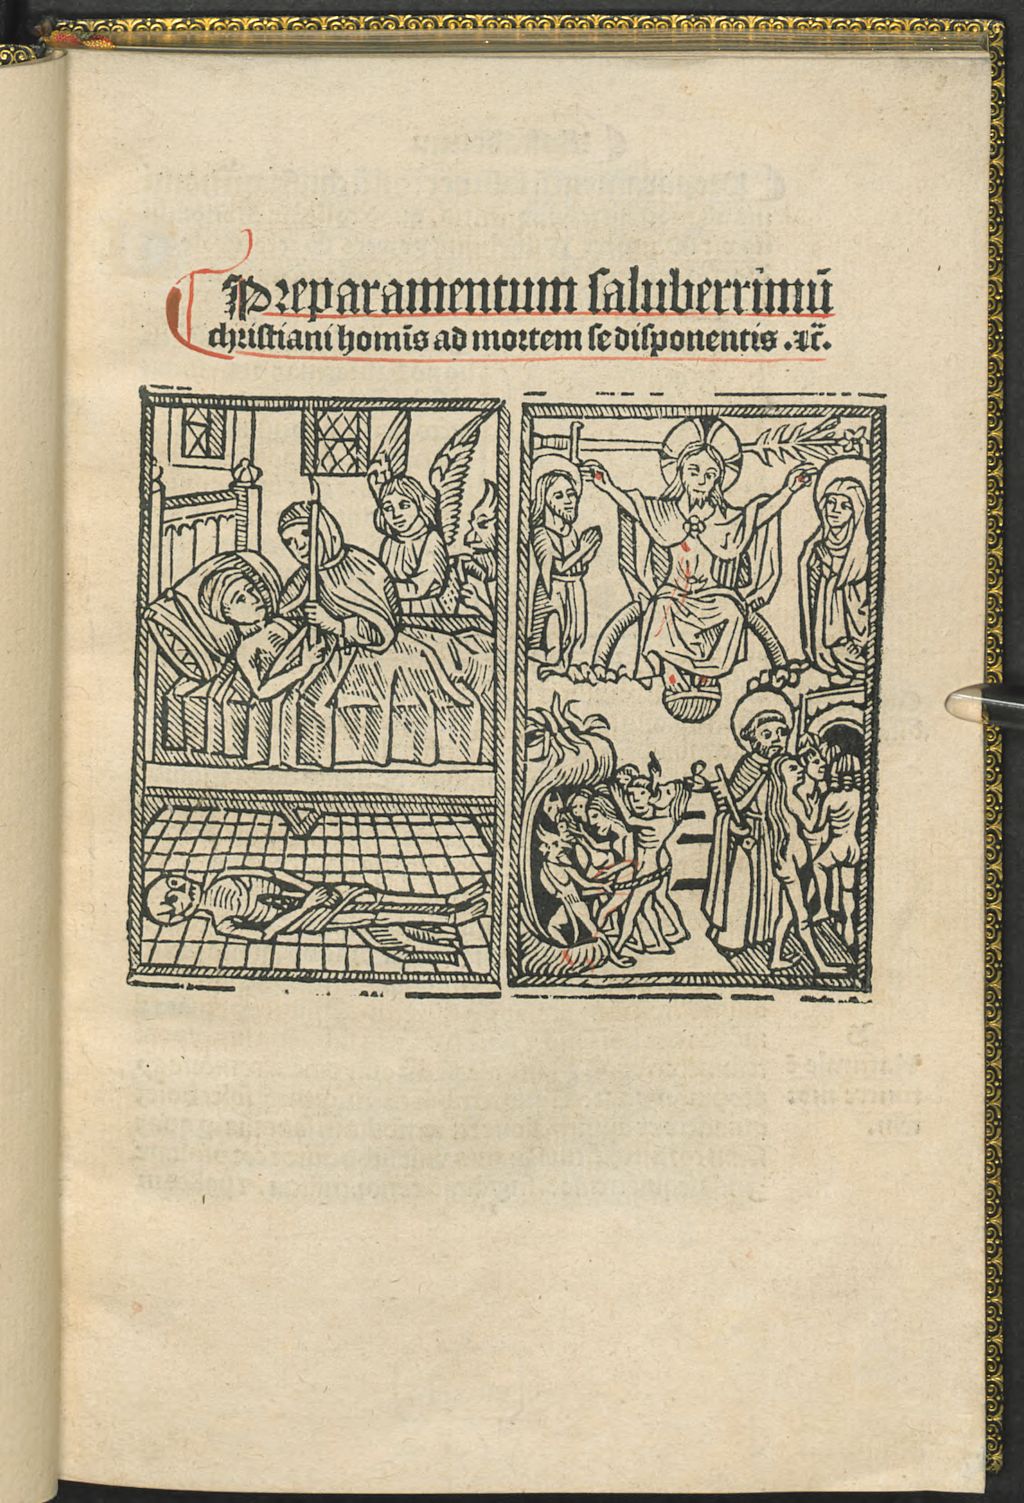 Preparamentum ſaluberrimū
chriſtiani homīs ad mortem ſe diſponentis .⁊c̄.